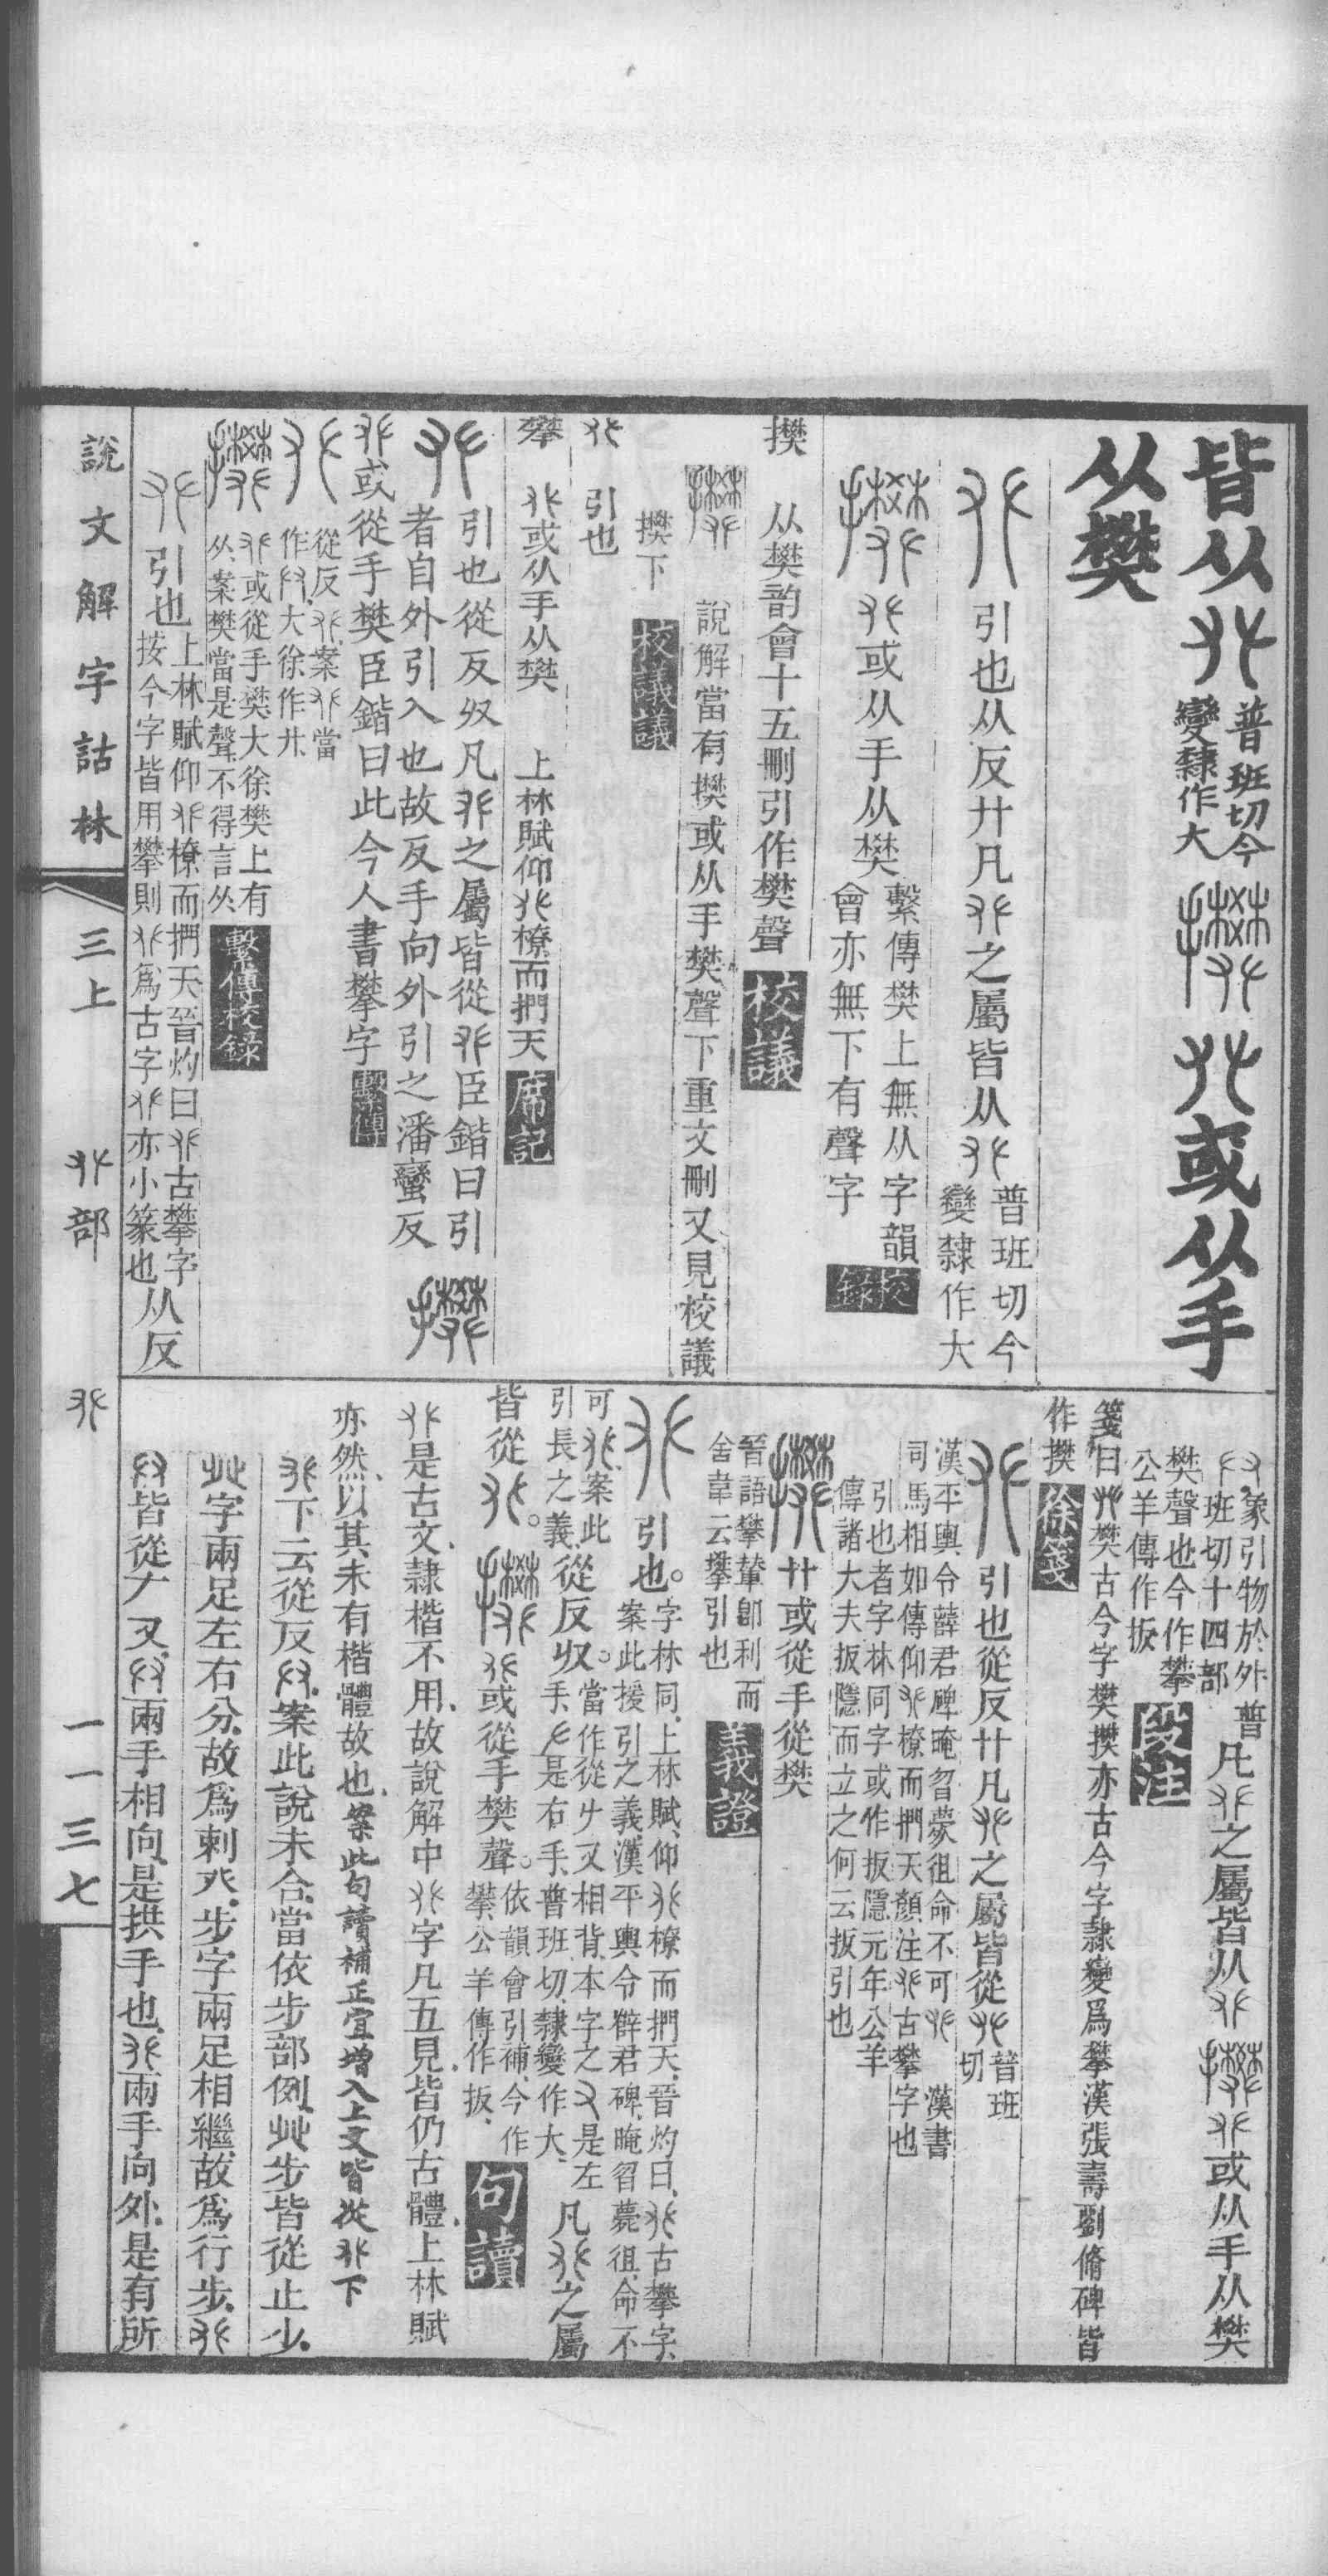 皆从𠬜普班切今
變隷作大𢸅𠬜或从手
从樊
𠬜引也从反廾凡𠬜之屬皆从𠬜普班切今
變隷作大
𢸅𠬜或从手从樊繫傳樊上無从字韻
會亦無下有聲字校錄
𢸅从樊韵會十五刪引作樊聲校議
𢸅說解當有𢸅或从手樊聲下重文刪又見校議
𢸅下校議議
𠬜引也
攀𠬜或从手从樊上林賦仰𠬜橑而捫天席記
𠬜引也從反𠬞凡𠬜之屬皆從𠬜臣鍇曰引
者自外引入也故反手向外引之潘蠻反𢸅
𠬜或從手樊臣鍇曰此今人書攀字繫傳
𠬜從反𠬜案𠬜當
作𠬞大徐作廾
𢸅𠬜或從手樊大徐樊上有
从案樊當是聲不得言从繫傳校錄
𠬜引也上林賦仰𠬜橑而捫天晉灼曰𠬜古攀字
按今字皆用攀則𠬜爲古字𠬜亦小篆也从反
𠬞象引物於外普
班切十四部凡𠬜之屬皆从𠬜𢸅𠬜或从手从樊
樊聲也今作攀
公羊傳作扳段注
箋曰𠬜樊古今字樊𢸅亦古今字隷變爲攀漢張壽劉脩碑皆
作𢸅徐箋
𠬜引也從反廾凡𠬜之屬皆從𠬜普班
切
漢平輿令薛君碑晻曶蒙徂命不可𠬜漢書
司馬相如傳仰𠬜橑而捫天顏注𠬜古攀字也
引也者字林同字或作扳隱元年公羊
傳諸大夫扳隱而立之何云扳引也
𢸅廾或從手從樊
晉語攀輦卽利而
舍韋云攀引也義證
𠬜引也。字林同上林賦仰𠬜橑而捫天晉灼曰𠬜古攀字
案此援引之義漢平輿令薛君碑晻曶薨徂命不
可𠬜案此
引長之義從反𠬞。當作從𠂇又相背本字之又是左
手𠂇是右手普班切隸變作大凡𠬜之屬
皆從𠬜。𢸅𠬜或從手樊聲。依韻會引補今作
攀公羊傳作扳句讀
𠬜是古文隷楷不用故說解中𠬜字凡五見皆仍古體上林賦
亦然以其未有楷體故也案此句讀補正宜增入上文皆從𠬜下
𠬜下云從反𠬞案此說未合當依步部例癶步皆從止少
癶字兩足左右分故爲剌癶步字兩足相繼故爲行步𠬜
𠬞皆從𠂇又𠬞兩手相向是拱手也𠬜兩手向外是有所
說文解字詁林
三上
𠬜部
𠬜
一一三七